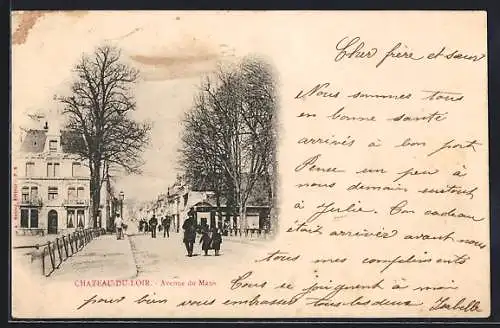 Cher frère et sœur
Nous sommes tous
en bonne santé
arrivés à bon port
Pensez un peu à
nous demain surtout
à Julie. Son cadeau
était arriver avant nous
tous mes compliments
CHATEAU-DU-LOIR. - Avenue du Mans
Tous se joignent à mais
pour bien vous embrasser tous les deux Isabelle